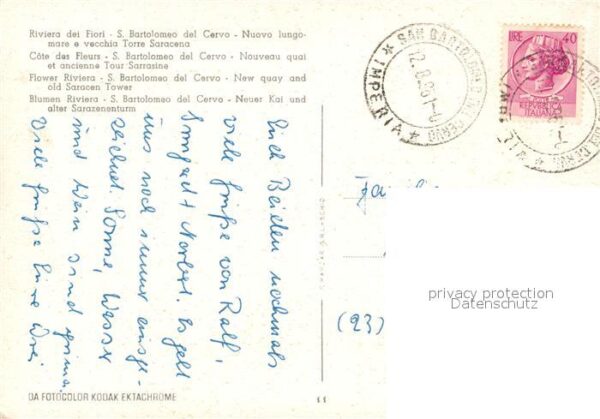 Riviera dei Fiori - S. Bartolomeo del Cervo - Nuovo lungo-
mare e vecchia Torre Saracena
Côte des Fleurs - S. Bartolomeo del Cervo - Nouveau quai
et ancienne Tour Sarrasine
Flower Riviera - S. Bartolomeo del Cervo - New quay and
old Saracen Tower
Blumen Riviera - S. Bartolomeo del Cervo - Neuer Kai und
alter Sarazenenturm
Euch Beiden nochmals
viele Grüße von Ralf,
Irmgard + Norbert. Es geht
uns noch immer ausge-
zeichnet. Sonne, Wasser
und Wein sind prima.
Viele Grüße Eure Drei
DA FOTOCOLOR KODAK EKTACHROME
11
Familie
(23)
privacy protection
Datenschutz
LIRE 40
REPVBBLICA
ITALIANA
SAN BARTOLOMEO
* IMPERIA *